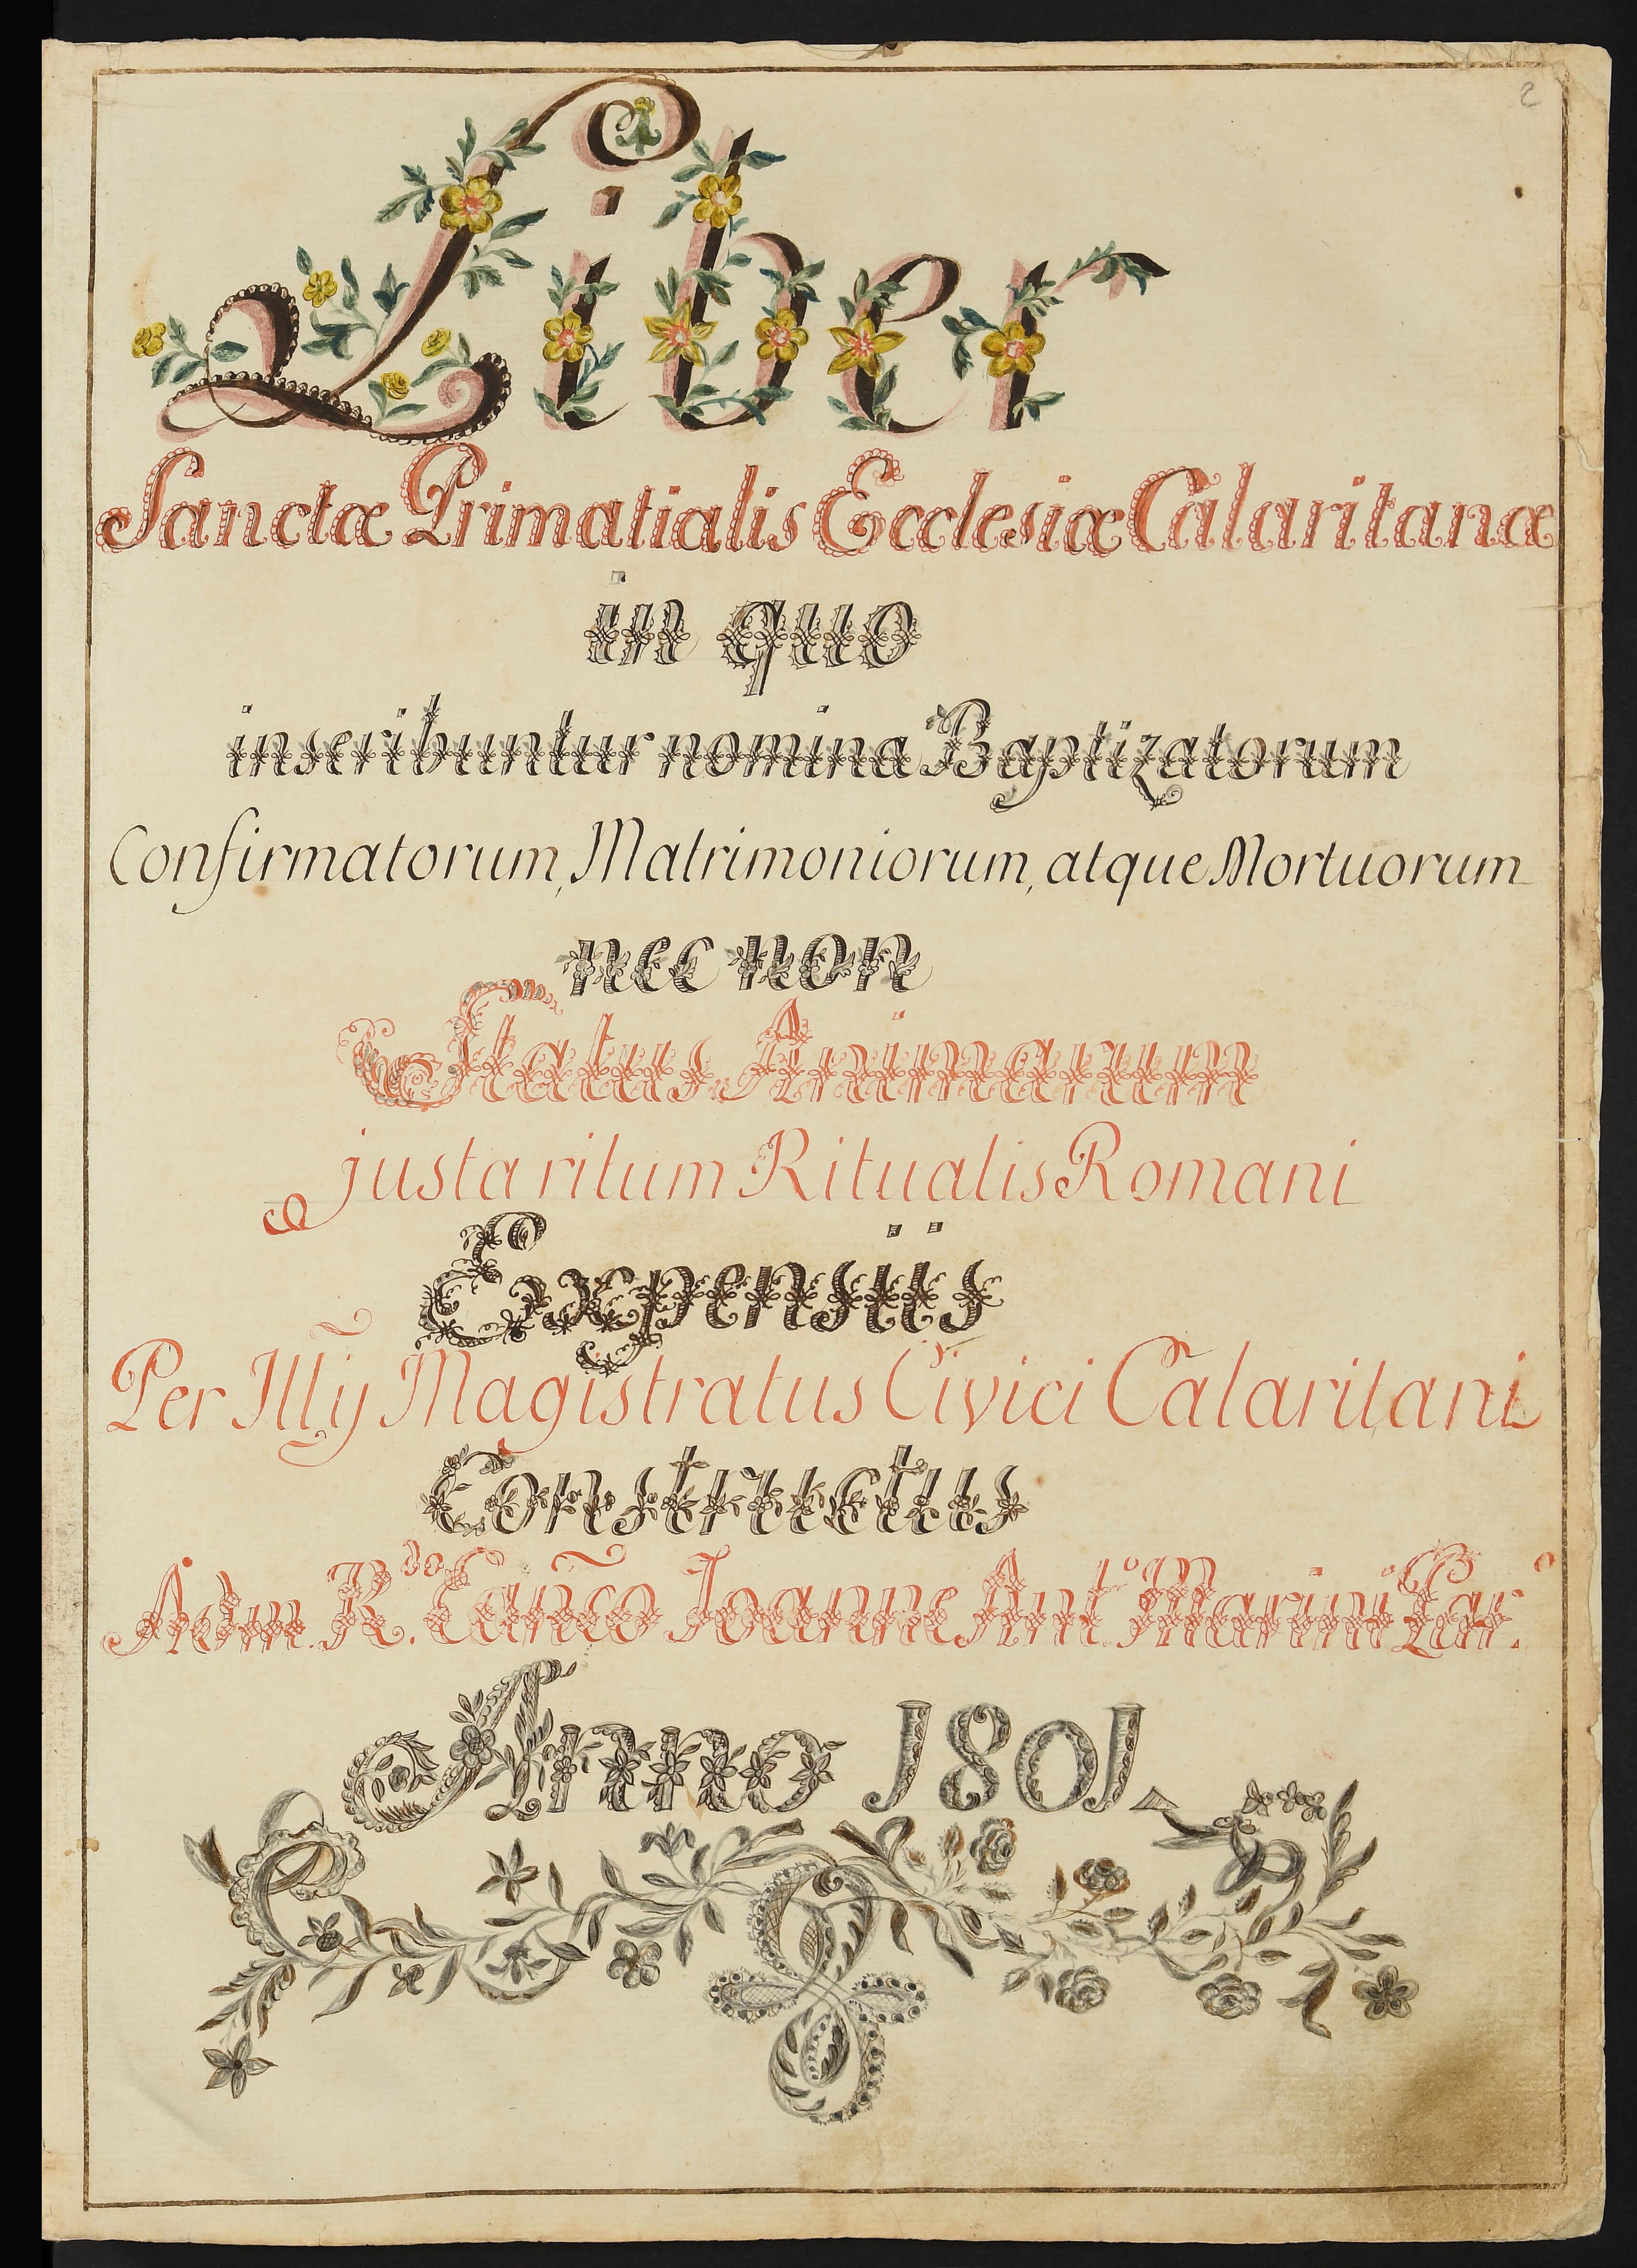 2
Liber
Sanctæ Primatialis Ecclesiæ Calaritanæ
in quo
inscribuntur nomina Baptizatorum
Confirmatorum, Matrimoniorum, atque Mortuorum
nec non
Status Animarum
justa ritum Ritualis Romani
Expensiis
Per Illỹ Magistratus Civici Calaritani
Constructus
Adm. R.do Cañco Joanne Ant.o Marini Par.o
Anno 1801